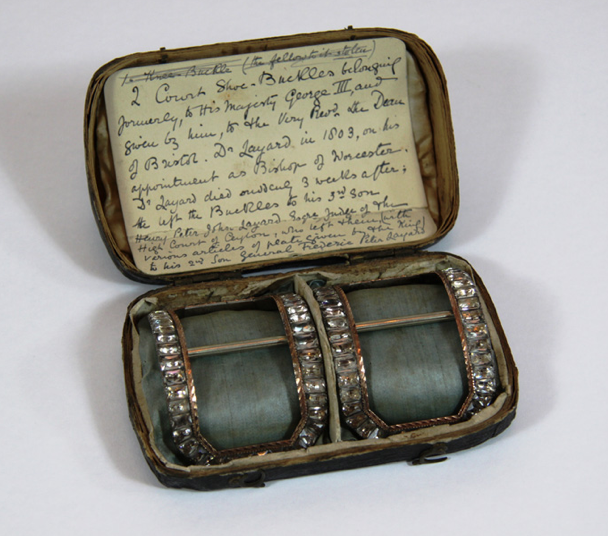 1 Knee-Buckle (the fellow to it stolen)
2 Court Shoe-Buckles belonging
formerly, to His Majesty George III, and
given by him, to the Very Revd. the Dean
of Bristol. Dr Layard in 1803, on his
appointment as Bishop of Worcester.
Dr Layard died suddenly 3 weeks after;
He left the Buckles to his 3rd Son
Henry Peter John Layard Esqre Judge of the
High Court of Ceylon, who left them (with
various articles of plate given by the King)
to his 2nd Son General Frederic Peter Layard